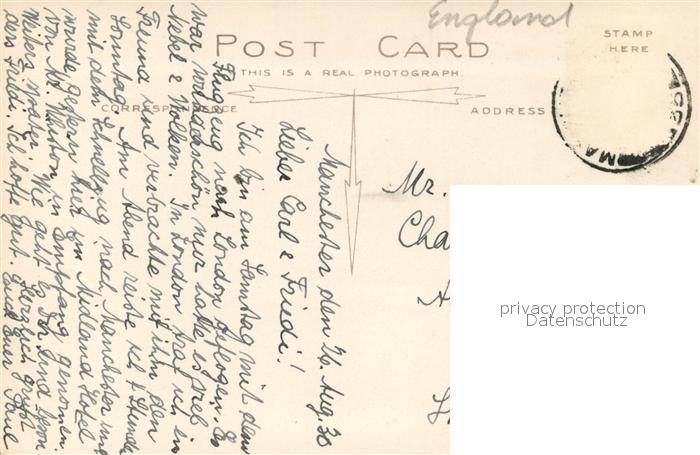 England
POST CARD
THIS IS A REAL PHOTOGRAPH.
STAMP
HERE
CORRESPONDENCE
ADDRESS
Manchester den 26. Aug. 30
Lieber Carl & Friedi!
Ich bin am Samstag mit dem
Flugzeug nach London geflogen. Es
war wunderschön nur hatte es viel
Nebel & Wolken. In London traf ich ein
Freund und verbrachte mit ihm den
Sonntag. Am Abend reiste ich 4 Stunden
mit dem Schnellzug nach Manchester und
wurde gestern hier im Midland Hotel
von Mr. in Empfang genommen.
Weiteres später. Wie geht es Dir und Deon
dess Friedi. Ich hoffe gut. Herzlich grüsst
Euch Euer Paul
Mr.
Cha
privacy protection
Datenschutz